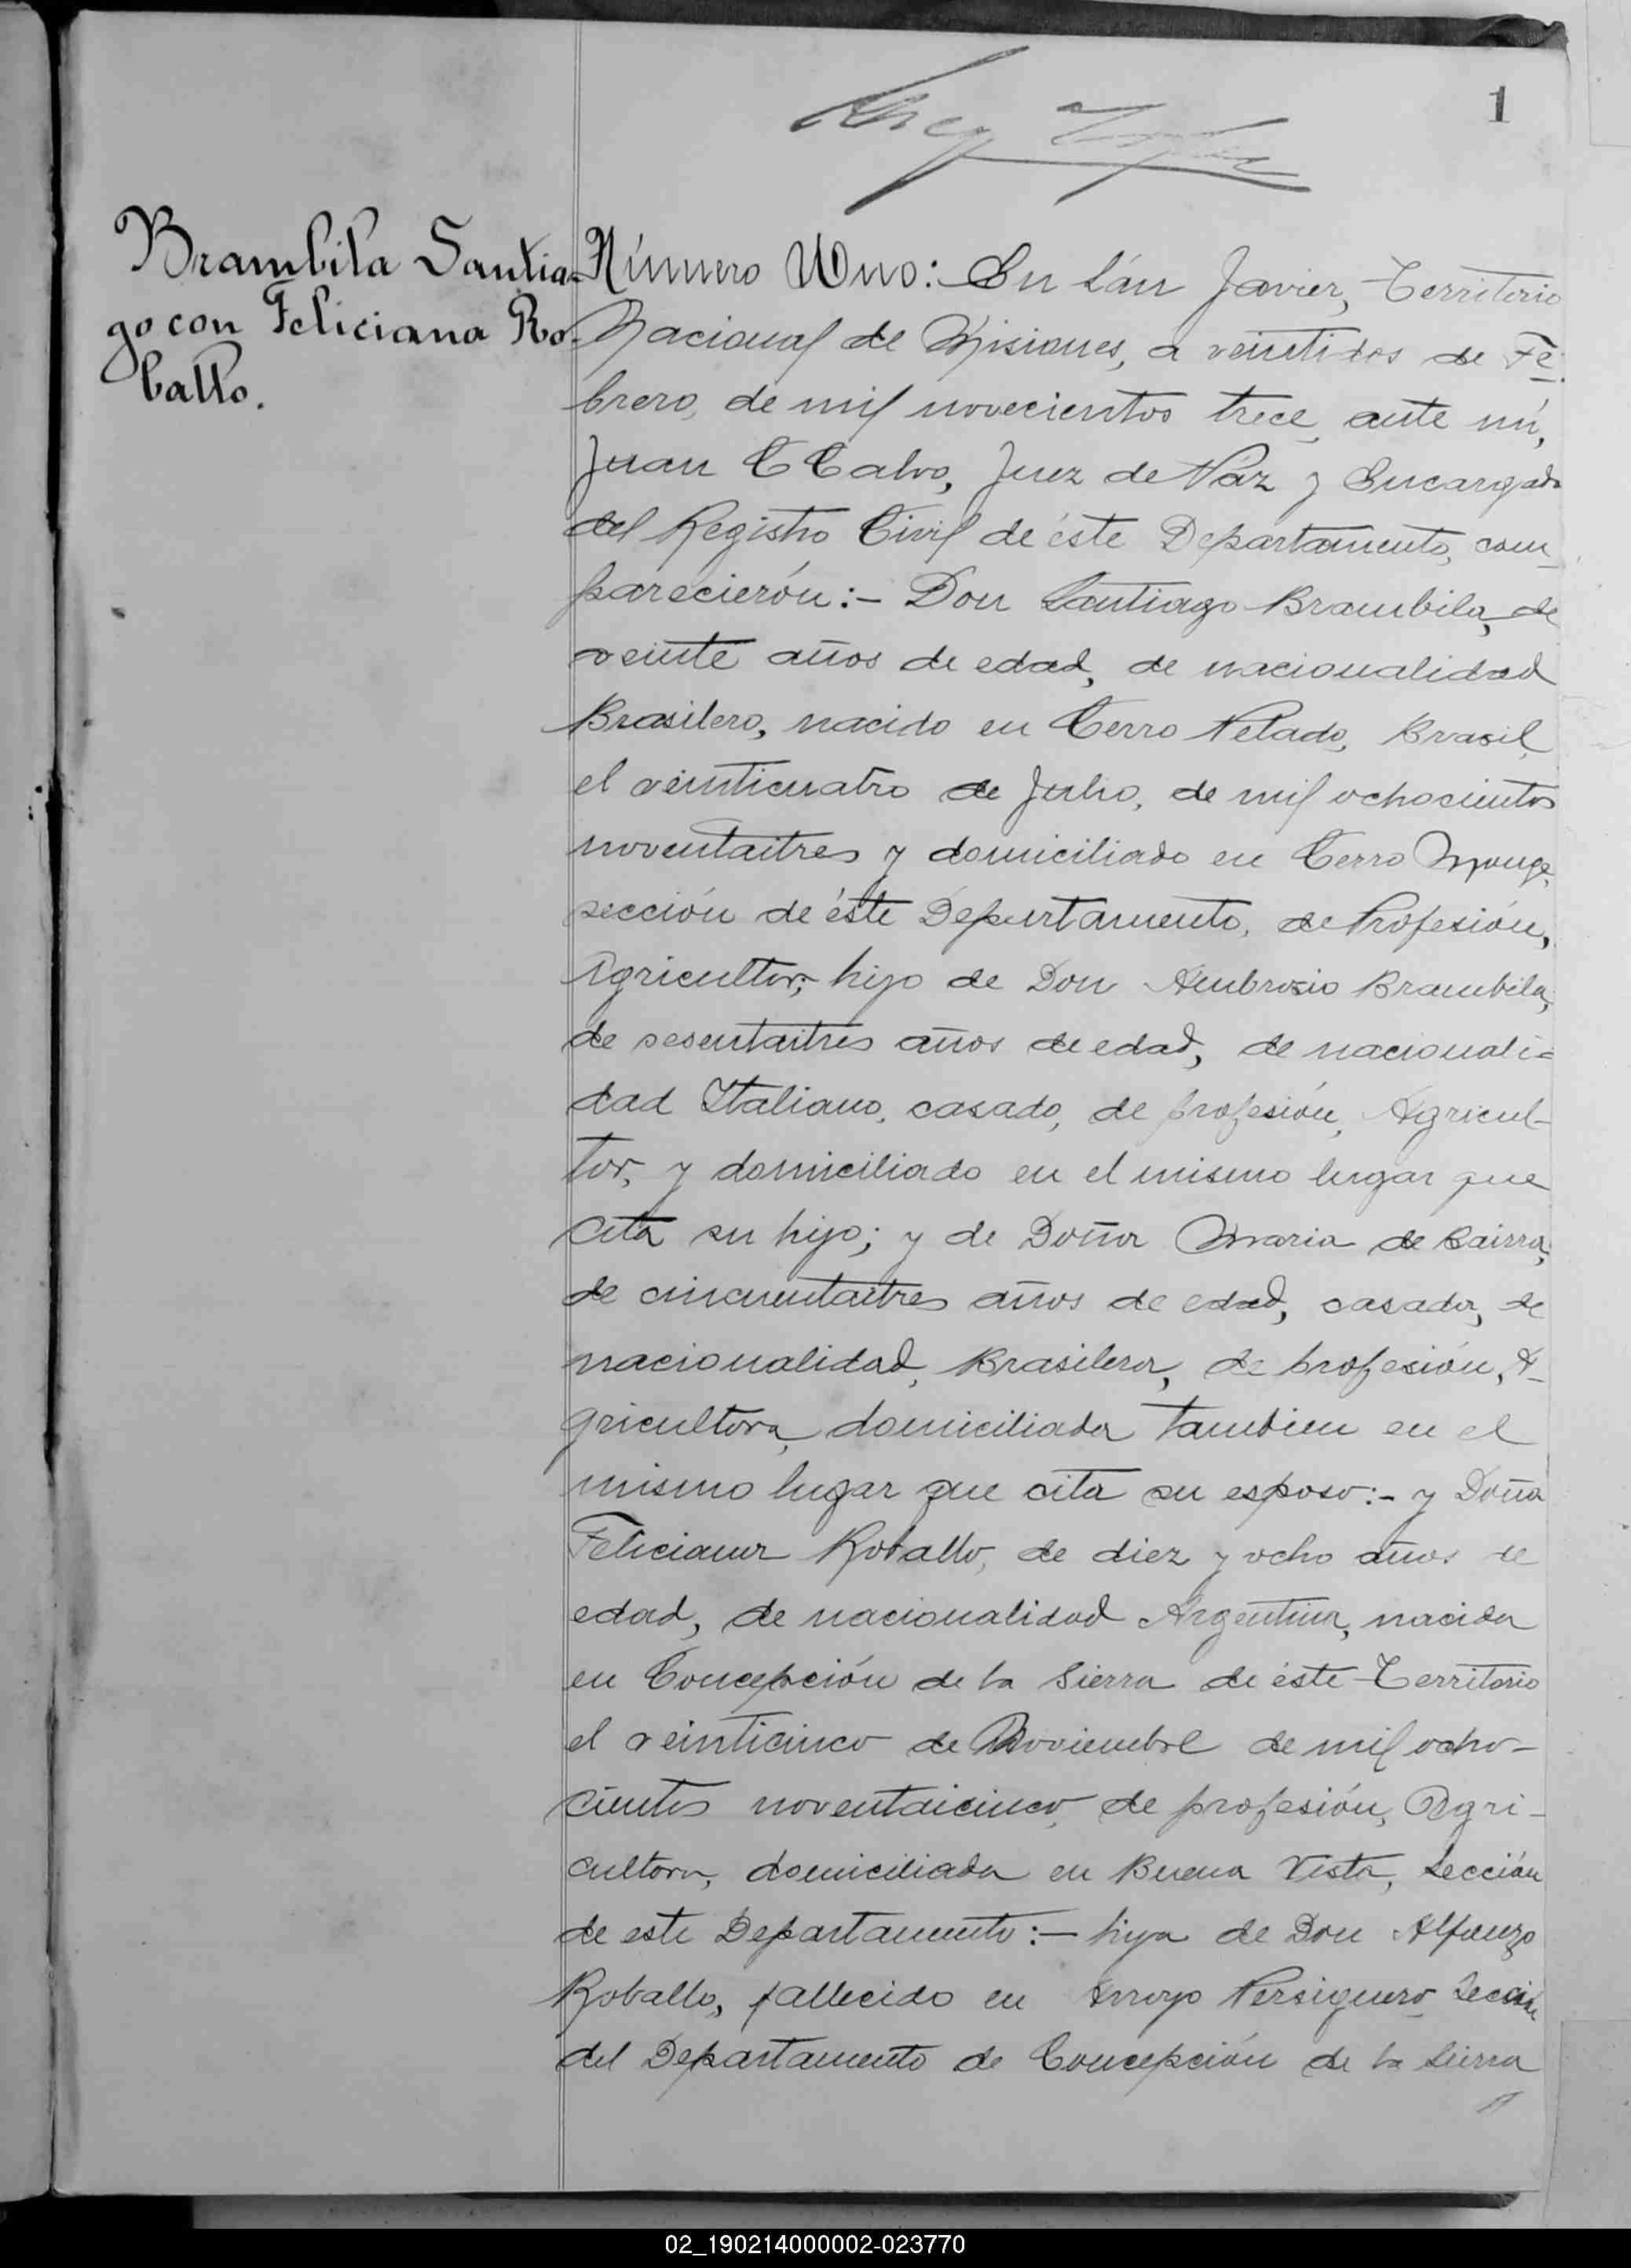 1
Brambila Santia-
go con Feliciana Ro-
ballo.
Número Uno: En Sán Javier, Territorio
Nacional de Misiones, a veintidos de Fe-
brero, de mil novecientos trece, ante mí,
Juan C Calvo, Juez de Páz y Encargado
del Registro Civil de éste Departamento, com-
parecierón:- Don Santiago Brambila, de
veinte años de edad, de nacionalidad
Brasilero, nacido en Cerro Pelado, Brasil,
el veinticuatro de Julio, de mil ochosientos
noventaitres y domiciliado en Cerro Monge,
sección de éste Departamento, de Profesión,
Agricultor; hijo de Don Ambrosio Brambila,
de sesentaitres años de edad, de nacionali-
dad Italiano, casado, de profesión, Agricul-
tor, y domiciliado en el mismo lugar que
cita su hijo; y de Doña Maria de
de cincuentaitres años de edad, casada, de
nacionalidad, Brasilera, de profesión, A-
gricultora, domiciliada tambien en el
mismo lugar que cita su esposo:- y Doña
Feliciana Roballo, de diez y ocho años de
edad, de nacionalidad Argentina, nacida
en Concepción de la Sierra de éste Territorio
el veinticinco de Noviembre de mil ocho-
cientos noventaicinco, de profesión, Agri-
cultora, domiciliada en Buena Vista, Sección
de este Departamento:- hija de Don Alfonzo
Roballo, fallecido en Arroyo Persiguero Sección
del Departamento de Concepción de la Sierra
02_190214000002-023770